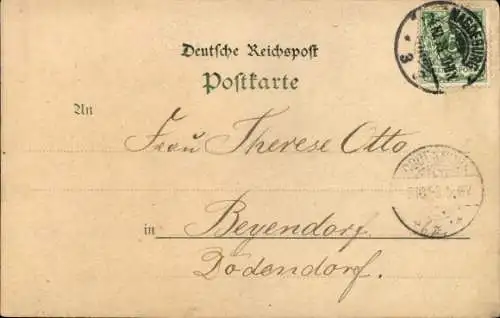 Deutsche Reichspost
Postkarte
An
Frau Therese Otto
in Beyendorf.
Dodendorf.
MAGDEBURG
3